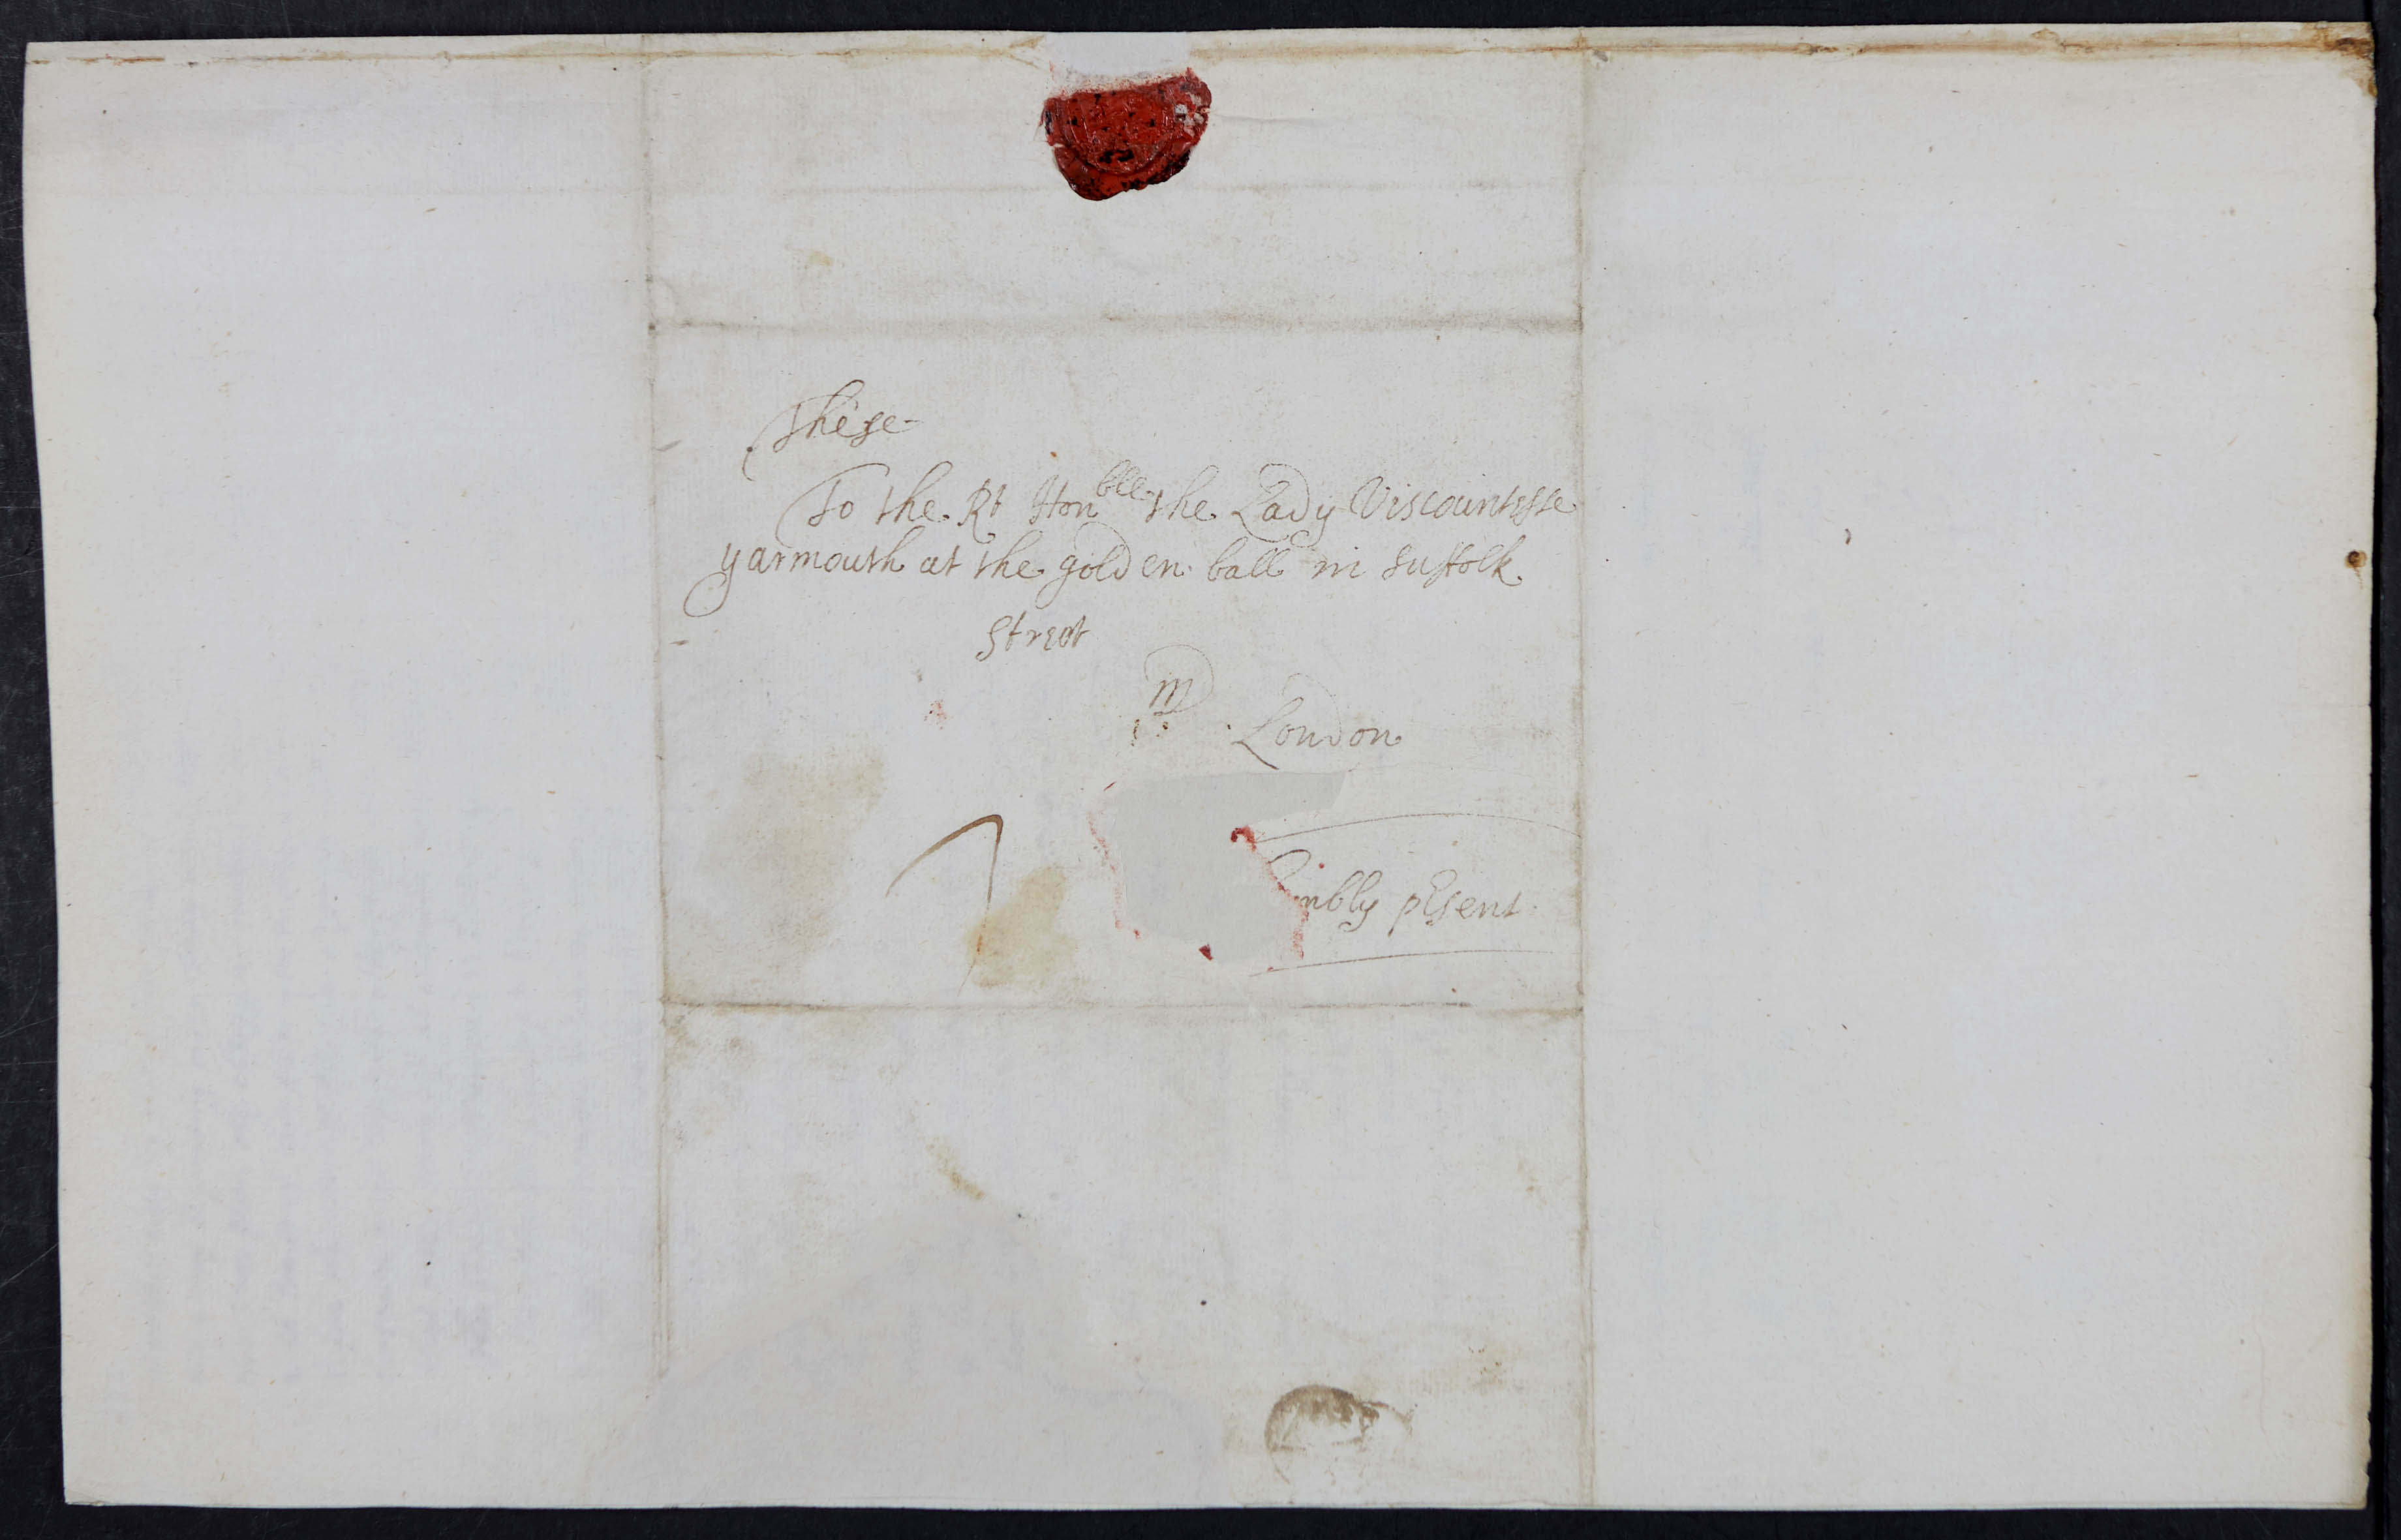 These
To the Rt Honble the Lady Viscountesse
yarmouth at the golden ball in suffolk
street
in
London
mbly pesent